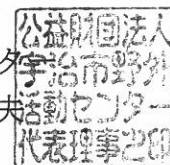 公益財団法人
宇治市野外
活動センター
代表理事之印
夕
夫